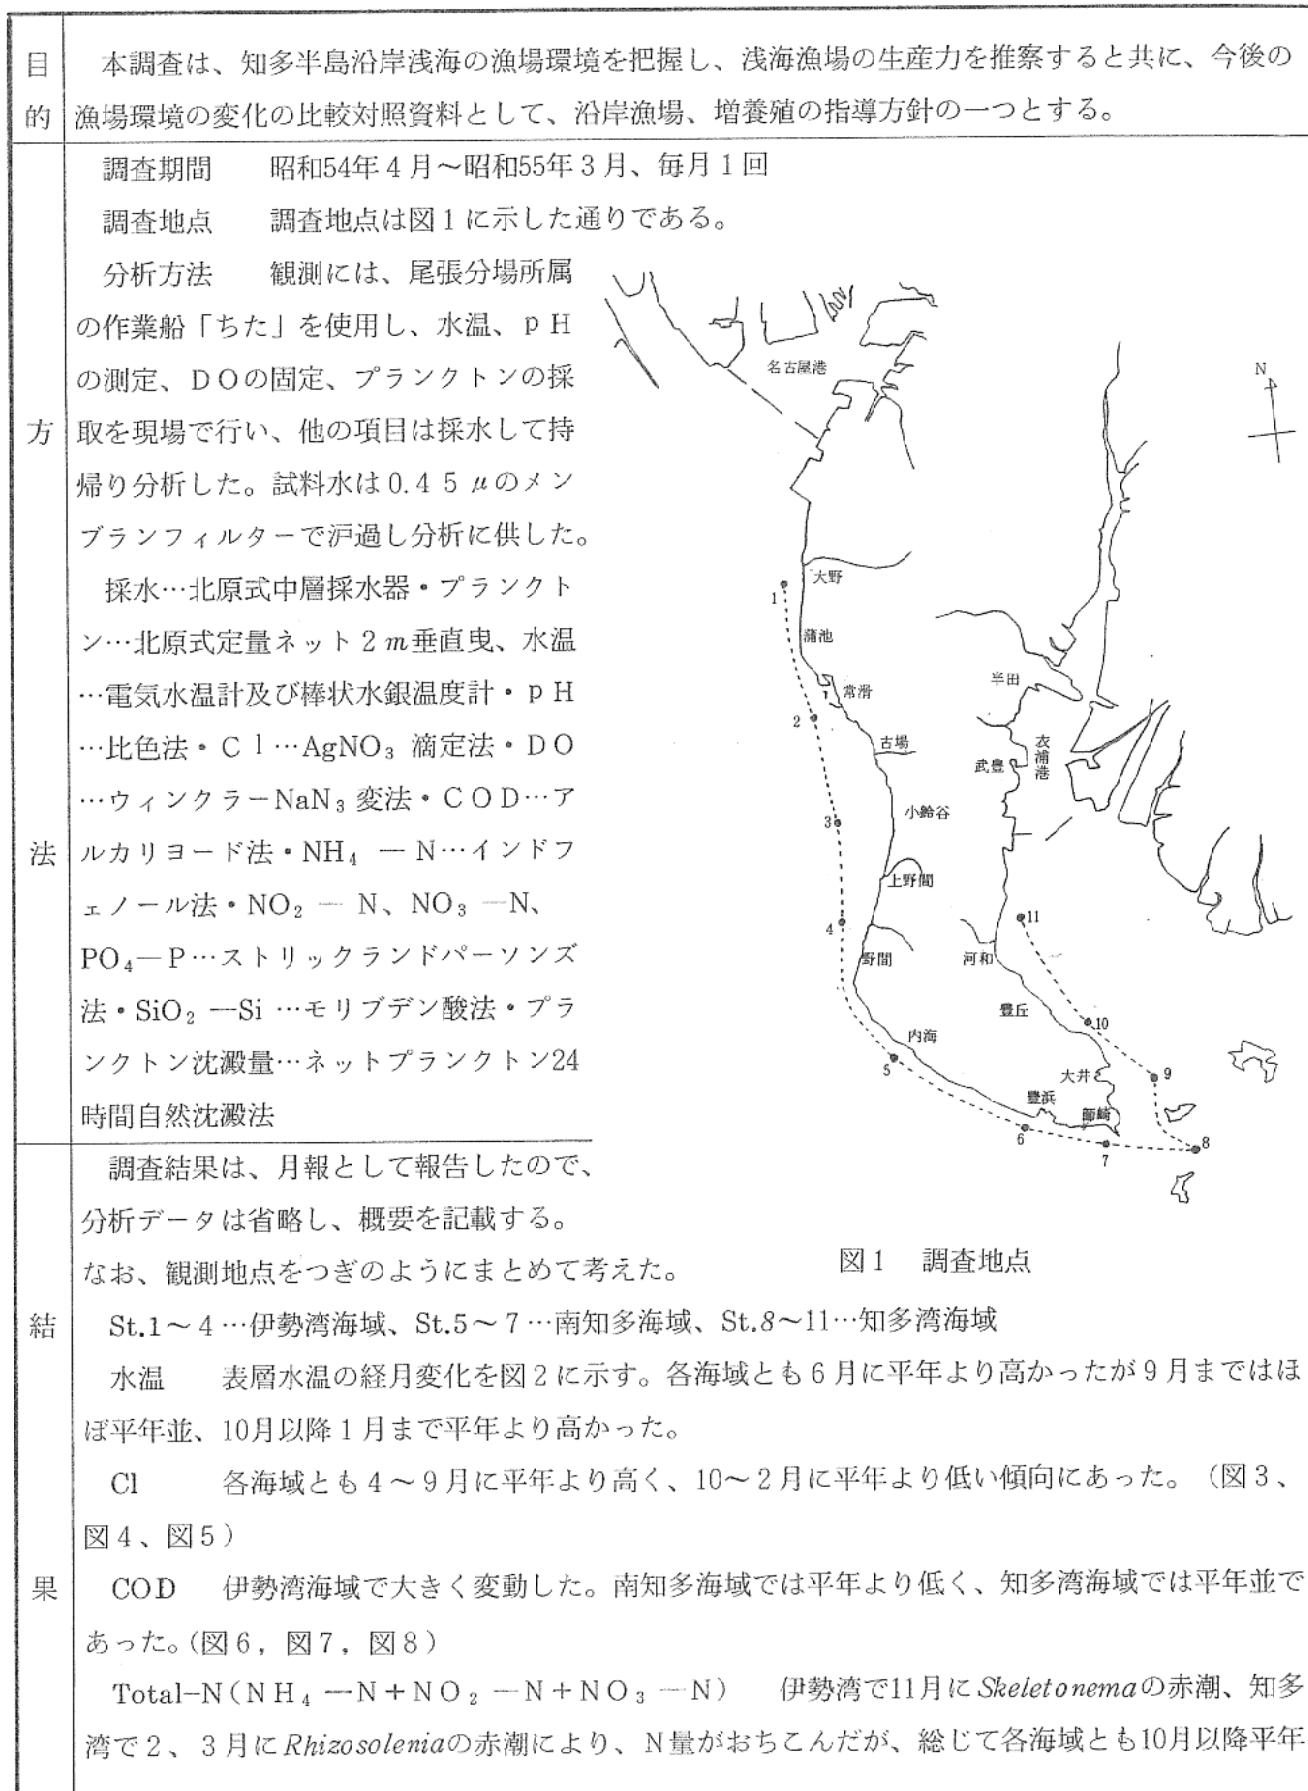 目的
本調査は、知多半島沿岸浅海の漁場環境を把握し、浅海漁場の生産力を推察すると共に、今後の
漁場環境の変化の比較対照資料として、沿岸漁場、増養殖の指導方針の一つとする。
方法
調査期間　昭和54年4月～昭和55年3月、毎月1回
調査地点　調査地点は図1に示した通りである。
分析方法　観測には、尾張分場所属
の作業船「ちた」を使用し、水温、pH
の測定、DOの固定、プランクトンの採
取を現場で行い、他の項目は採水して持
帰り分析した。試料水は0.45μのメン
ブランフィルターで沪過し分析に供した。
採水…北原式中層採水器・プランクト
ン…北原式定量ネット2m垂直曳、水温
…電気水温計及び棒状水銀温度計・pH
…比色法・Cl…AgNO₃滴定法・DO
…ウィンクラーNaN₃変法・COD…ア
ルカリヨード法・NH₄―N…インドフ
ェノール法・NO₂―N、NO₃―N、
PO₄―P…ストリックランドパーソンズ
法・SiO₂―Si…モリブデン酸法・プラ
ンクトン沈澱量…ネットプランクトン24
時間自然沈澱法
名古屋港
N
大野
1
蒲池
常滑
2
古場
半田
衣浦港
武豊
小鈴谷
3
上野間
4
野間
河和
11
豊丘
10
内海
5
大井
9
豊浜
師崎
6
7
8
図1　調査地点
結果
調査結果は、月報として報告したので、
分析データは省略し、概要を記載する。
なお、観測地点をつぎのようにまとめて考えた。
St.1～4…伊勢湾海域、St.5～7…南知多海域、St.8～11…知多湾海域
水温　表層水温の経月変化を図2に示す。各海域とも6月に平年より高かったが9月まではほ
ぼ平年並、10月以降1月まで平年より高かった。
Cl　各海域とも4～9月に平年より高く、10～2月に平年より低い傾向にあった。（図3、
図4、図5）
COD　伊勢湾海域で大きく変動した。南知多海域では平年より低く、知多湾海域では平年並で
あった。(図6，図7，図8）
Total-N(NH₄―N+NO₂―N+NO₃―N)　伊勢湾で11月にSkeletonemaの赤潮、知多
湾で2、3月にRhizosoleniaの赤潮により、N量がおちこんだが、総じて各海域とも10月以降平年